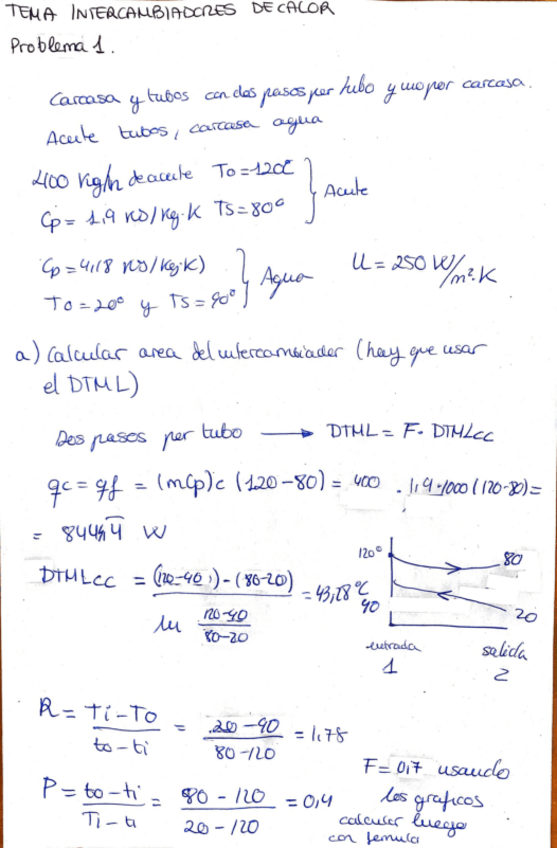 TEMA INTERCAMBIADORES DE CALOR
Problema 1.
Carcasa y tubos con dos pasos por tubo y uno por carcasa.
Aceite tubos, carcasa agua
400 kg/h de aceite To = 120°C
Cp = 1,9 KJ/Kg·K Ts = 80° } Aceite
Cp = 4,18 KJ/Kg·K)
To = 20° y Ts = 90° } Agua U = 250 W/m²·K
a) Calcular area del intercambiador (hay que usar
el DTML)
Dos pasos por tubo → DTML = F · DTMLcc
qc = qf = (mCp)c (120-80) = 400 · 1,9·1000 (120-80) =
= 8444,4 W
DTMLcc = (120-90) - (80-20) / ln 120-90 / 80-20 = 43,28°C
120° 80
90 20
entrada salida
1 2
R = Ti-To / to-ti = 20-90 / 80-120 = 1,78
P = to-ti / Ti-ti = 80-120 / 20-120 = 0,4
F = 0,7 usando
los graficos
calcular luego
con formula